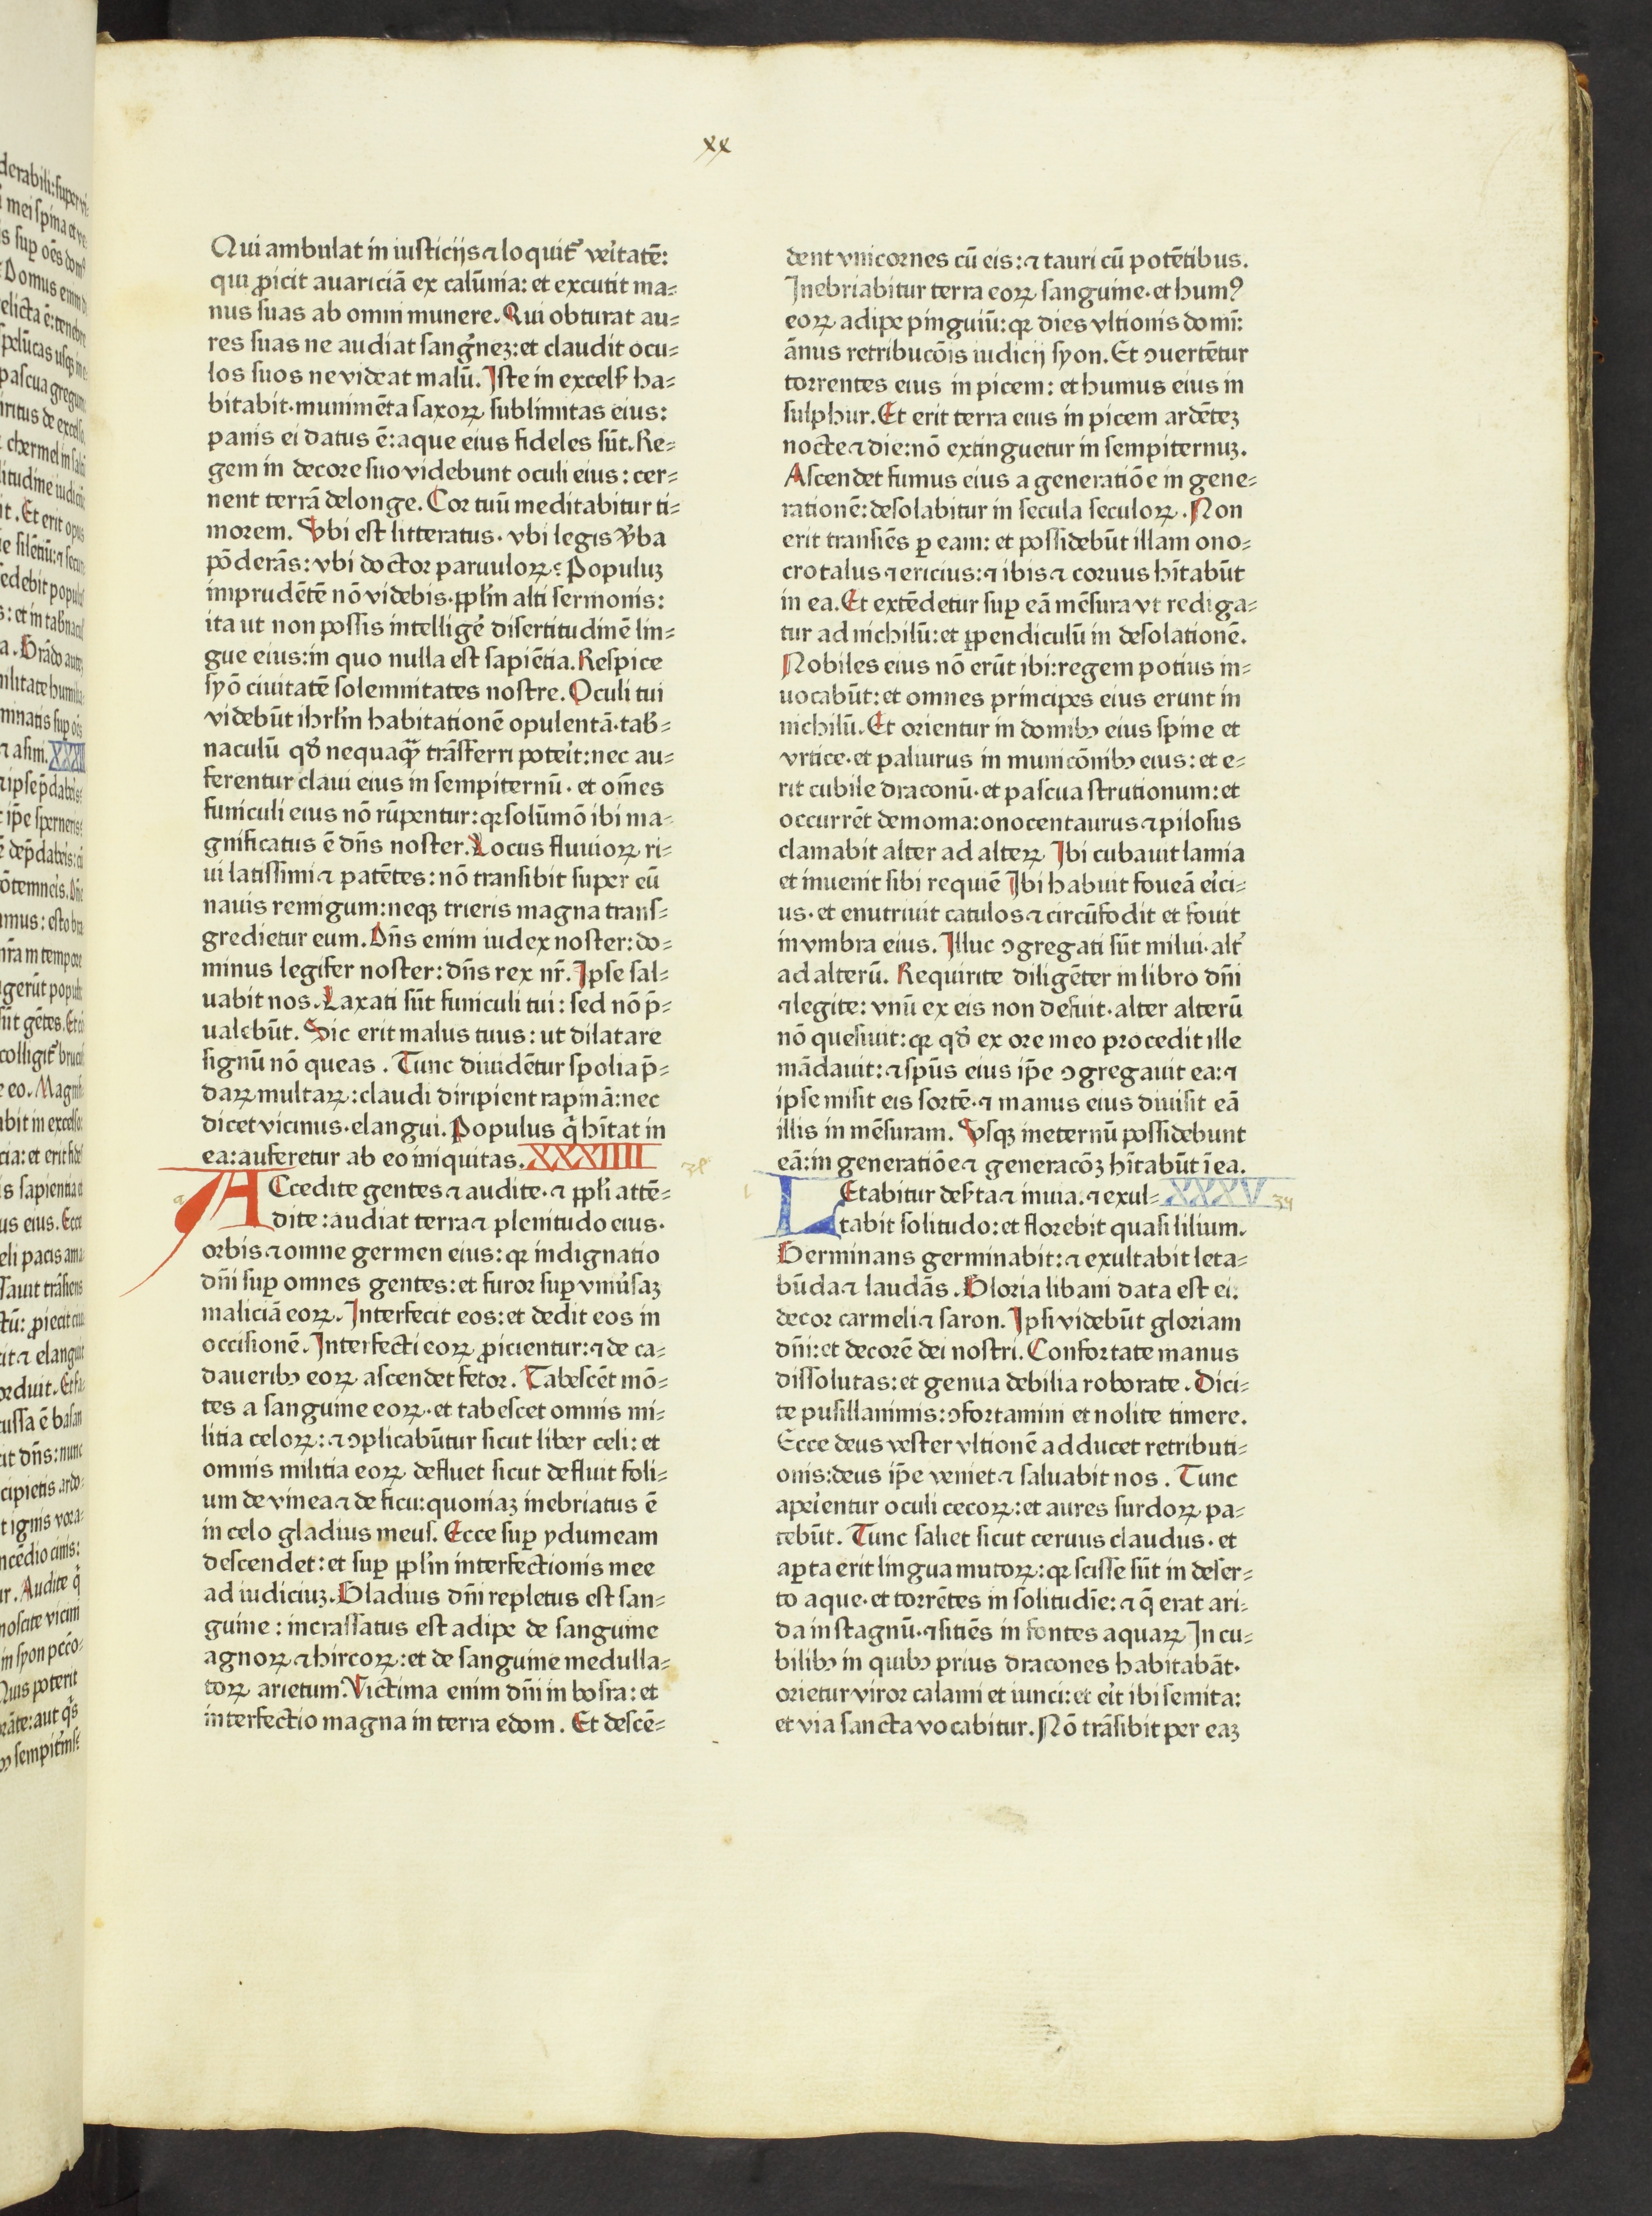 xx
Qui ambulat in iusticijs ⁊ loquit᷑ veritatē:
qui ꝓicit auariciā ex calūmia: et excutit ma⸗
nus suas ab omni munere. Qui obturat au⸗
res suas ne audiat sangͥnez: et claudit ocu⸗
los suos ne videat malū. Iste in excelẜ ha⸗
bitabit· munimēta saxoꝝ sublimitas eius:
panis ei datus ē: aque eius fideles sūt. Re⸗
gem in decore suo videbunt oculi eius: cer⸗
nent terrā de longe. Cor tuū meditabitur ti⸗
morem. Vbi est litteratus· vbi legis v̉ba
pōderās: vbi doctor paruuloꝝ: Populuz
imprudētē nō videbis· ppl̄m alti sermonis:
ita ut non possis intelligē disertitudinē lin⸗
gue eius: in quo nulla est sapiētia. Respice
syō ciuitatē solemnitates nostre. Oculi tui
videbūt ihrl̄m habitationē opulentā· tab̉⸗
naculū qd̄ nequaqͣꝫ trāsferri poteřit: nec au⸗
ferentur claui eius in sempiternū· et om̄es
funiculi eius nō rūpentur: qꝛ solūmō ibi ma⸗
gnificatus ē dn̄s noster. Locus fluuioꝝ ri⸗
ui latissimi ⁊ patētes: nō transibit super eū
nauis remigum: neqꝫ trieris magna trans⸗
gredietur eum. Dn̄s enim iudex noster: do⸗
minus legifer noster: dn̄s rex nr̄. Ipse sal⸗
uabit nos. Laxati sūt funiculi tui: sed nō p̄⸗
ualebūt. Sic erit malus tuus: ut dilatare
signū nō queas. Tunc diuidētur spolia p̄⸗
daꝝ multaꝝ: claudi diripient rapinā: nec
dicet vicinus· elangui. Populus q̄ hītat in
ea: auferetur ab eo iniquitas. XXXIIII
ACcedite gentes ⁊ audite· ⁊ ppl̄i attē⸗
dite: audiat terra ⁊ plenitudo eius·
orbis ⁊ omne germen eius: qꝛ indignatio
dn̄i suꝑ omnes gentes: et furor suꝑ vniūsaz
maliciā eoꝝ. Interfecit eos: et dedit eos in
occisionē. Interfecti eoꝝ ꝓicientur: ⁊ de ca⸗
daueribꝰ eoꝝ ascendet fetor. Tabescēt mō⸗
tes a sanguine eoꝝ· et tabescet omnis mi⸗
litia celoꝝ: ⁊ ꝯplicabūtur sicut liber celi: et
omnis militia eoꝝ defluet sicut defluit foli⸗
um de vinea ⁊ de ficu: quoniaz inebriatus ē
in celo gladius meus. Ecce suꝑ ydumeam
descendet: et suꝑ ppl̄m interfectionis mee
ad iudiciuz. Gladius dn̄i repletus est san⸗
guine: incrassatus est adipe de sanguine
agnoꝝ ⁊ hircoꝝ: et de sanguine medulla⸗
toꝝ arietum. Victima enim dn̄i in bosra: et
interfectio magna in terra edom. Et descē⸗
dent vnicornes cū eis: ⁊ tauri cū potētibus.
Inebriabitur terra eoꝝ sanguine· et humꝰ
eoꝝ adipe pinguiū: qꝛ dies vltionis domī:
ānus retribucōis iudicij syon. Et ꝯuertētur
torrentes eius in picem: et humus eius in
sulphur. Et erit terra eius in picem ardētez
nocte ⁊ die: nō extinguetur in sempiternuz.
Ascendet fumus eius a generatiōe in gene⸗
rationē: desolabitur in secula seculoꝝ. Non
erit transiēs ꝑ eam: et possidebūt illam ono⸗
crotalus ⁊ ericius: ⁊ ibis ⁊ coruus hītabūt
in ea. Et extēdetur suꝑ eā mēsura vt rediga⸗
tur ad nichilū: et ꝑpendiculū in desolationē.
Nobiles eius nō erūt ibi: regem potius in⸗
uocabūt: et omnes principes eius erunt in
nichilū. Et orientur in domibꝰ eius spine et
vrtice· et paliurus in municōnibꝰ eius: et e⸗
rit cubile draconū· et pascua strutionum: et
occurrēt demonia: onocentaurus ⁊ pilosus
clamabit alter ad alteꝝ Ibi cubauit lamia
et inuenit sibi requiē Ibi habuit foueā eřici⸗
us· et enutriuit catulos ⁊ circūfodit et fouit
in vmbra eius. Illuc ꝯgregati sūt milui· alt᷑
ad alterū. Requirite diligēter in libro dn̄i
⁊ legite: vnū ex eis non defuit· alter alterū
nō quesiuit: qꝛ qd̄ ex ore meo procedit ille
mādauit: ⁊ spūs eius ip̄e ꝯgregauit ea: ⁊
ipse misit eis sortē· ⁊ manus eius diuisit eā
illis in mēsuram. Vsqꝫ in eternū possidebunt
eā: in generatiōe ⁊ generacōꝫ hītabūt ī ea.
LEtabitur deẜta ⁊ inuia. ⁊ exul⸗ XXXV 34
tabit solitudo: et florebit quasi lilium.
Germinans germinabit: ⁊ exultabit leta⸗
būda ⁊ laudās. Gloria libani data est ei:
decor carmeli ⁊ saron. Ipsi videbūt gloriam
dn̄i: et decorē dei nostri. Confortate manus
dissolutas: et genua debilia roborate. Dici⸗
te pusillanimis: ꝯfortamini et nolite timere.
Ecce deus vester vltionē adducet retributi⸗
onis: deus ip̄e veniet ⁊ saluabit nos. Tunc
apeřientur oculi cecoꝝ: et aures surdoꝝ pa⸗
tebūt. Tunc saliet sicut ceruus claudus· et
aꝑta erit lingua mutoꝝ: qꝛ scisse sūt in deser⸗
to aque· et torrētes in solitudīe: ⁊ q̄ erat ari⸗
da in stagnū· ⁊ sitiēs in fontes aquaꝝ In cu⸗
bilibꝰ in quibꝰ prius dracones habitabāt·
orietur viror calami et iunci: et eřit ibi semita:
et via sancta vocabitur. Nō trāsibit per eaz